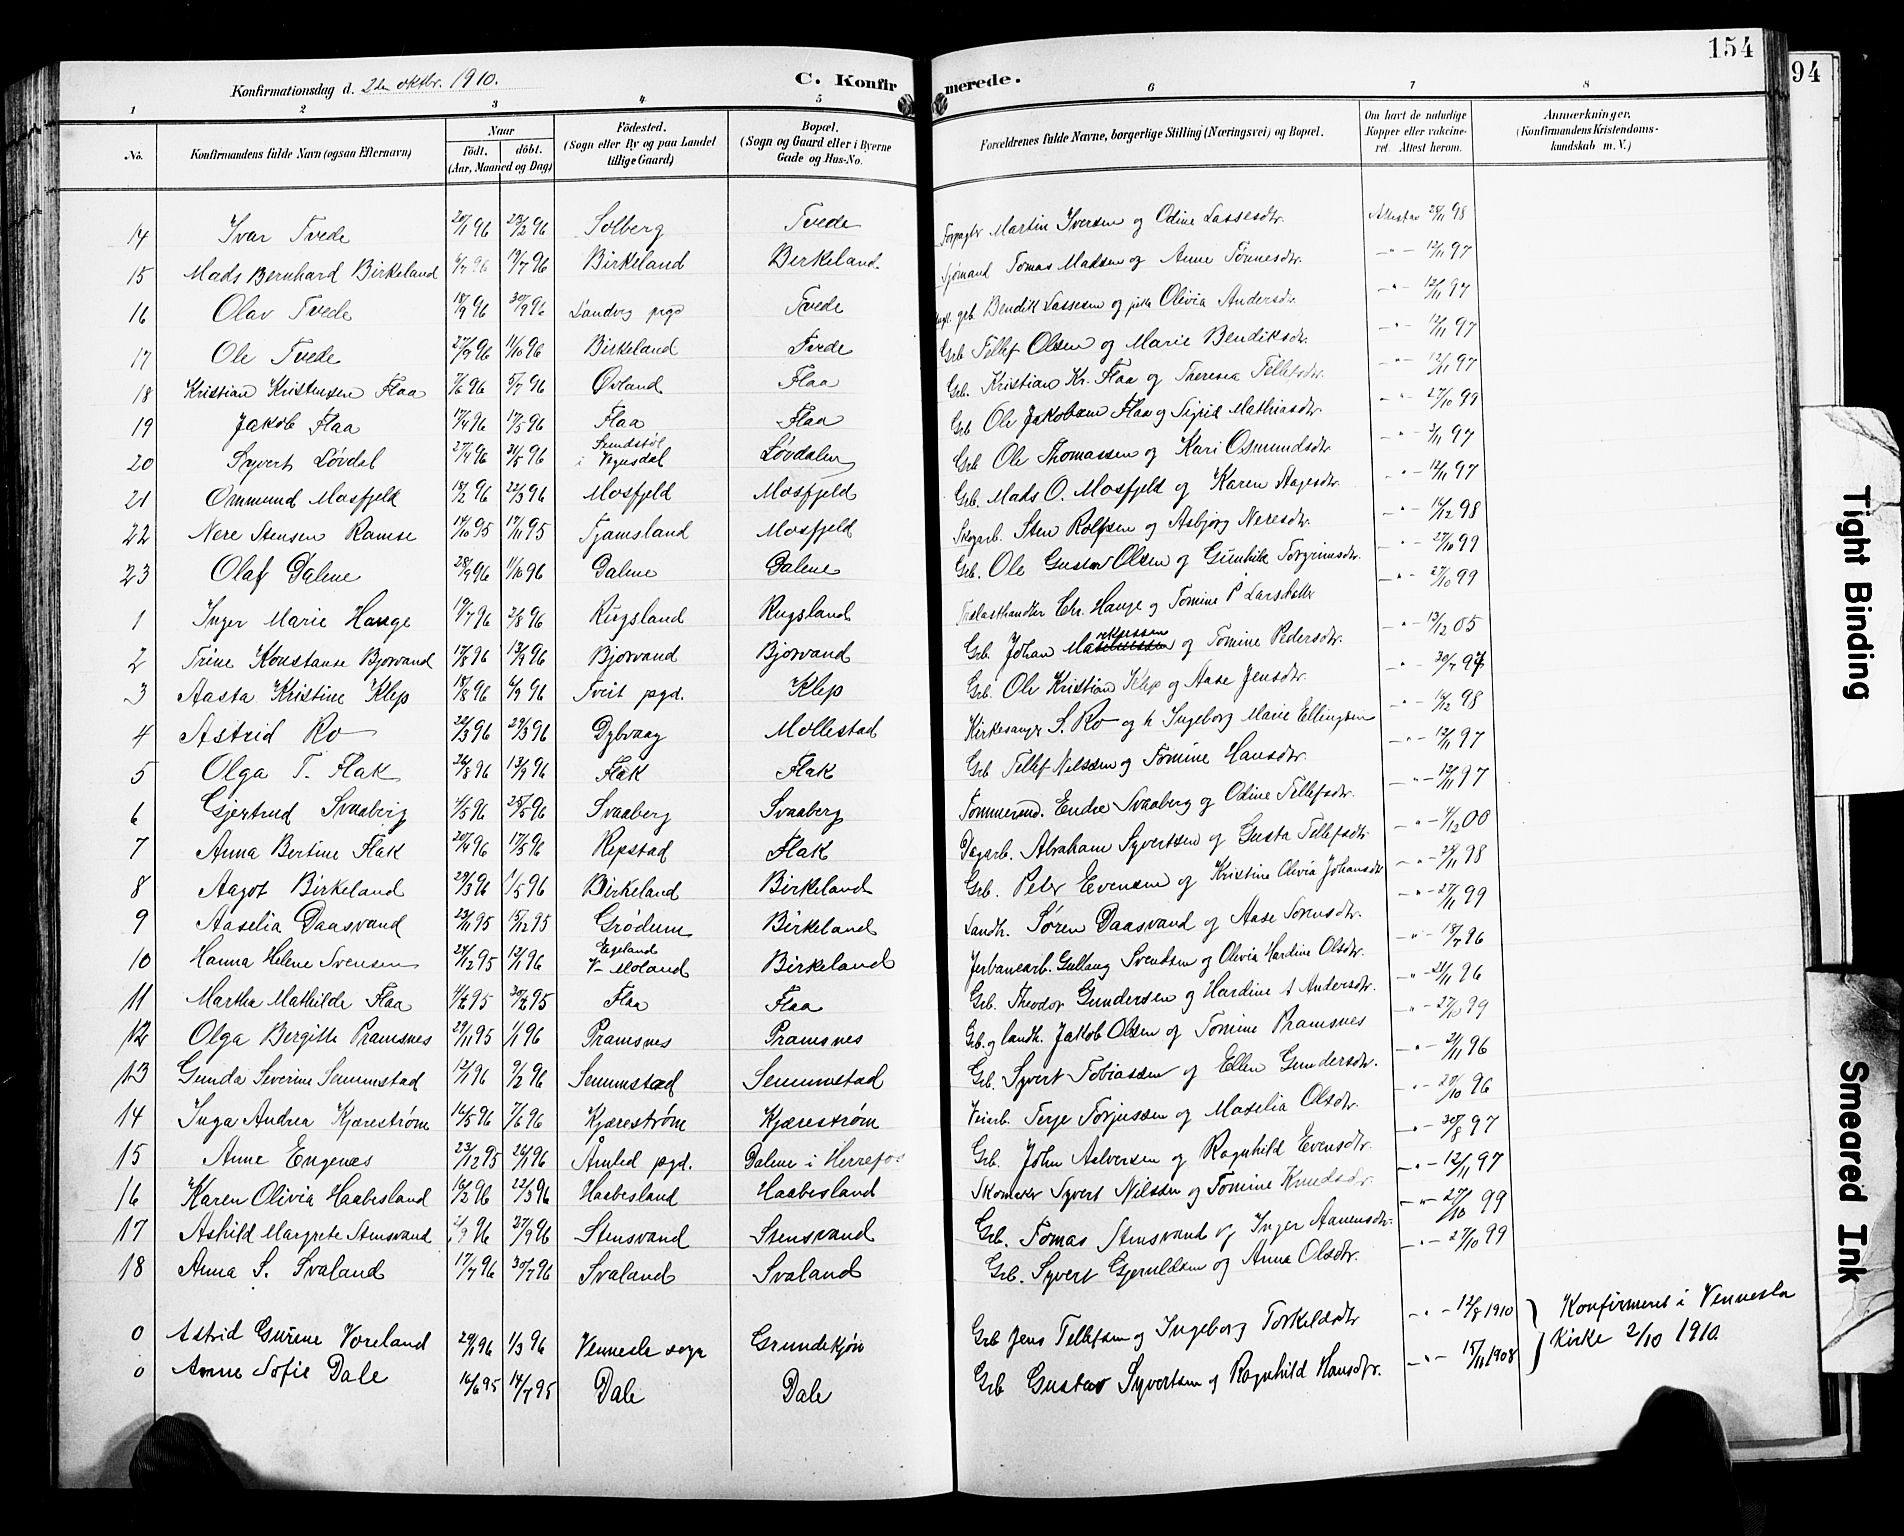 154
94
Konfirmationsdag d. 2den oktbr. 1910.
C. Konfirmerede.
1 2 3 4 5 6 7 8
No. Konfirmandens fulde Navn (ogsaa Efternavn) Naar födt. döbt. (Aar, Maaned og Dag) Födested. (Sogn eller By og paa Landet tillige Gaard) Bopæl. (Sogn og Gaard eller i Byerne Gade og Hus-No. Forældrenes fulde Navne, borgerlige Stilling (Næringsvei) og Bopæl. Om havt de naturlige Kopper eller vakcineret. Attest herom. Anmærkninger. (Konfirmandens Kristendomskundskab m. V.)
14 Ivar Tvede 20/1 96 23/2 96 Solberg Tvede Forpagter Martin Iversen og Odine Lassesdtr. Attestav 25/11 98
15 Mads Bernhard Birkeland 6/7 96 19/7 96 Birkeland Birkeland. Sjømand Tomas Madsen og Anne Tønnesdtr. — " — 12/11 97
16 Olav Tvede 18/9 96 30/9 96 Landvig prgd Tvede grb. Bendik Lassesen og Olivia Andersdtr. — " — 12/11 97
17 Ole Tvede 27/9 96 11/10 96 Birkeland Tvede Grb Tellef Olsen og Marie Bendiksdtr. — " — 12/11 97
18 Kristian Kristensen Flaa 7/6 96 5/7 96 Øvland Flaa Grb. Kristian Kr. Flaa og Theresia Tellefsdtr. — " — 12/11 97
19 Jakob Flaa 17/4 96 17/5 96 Flaa Flaa Grb Ole Jakobsen Flaa og Sigrid Mathiasdtr. — " — 27/10 99
20 Syvert Løvdal 27/4 96 31/5 96 i Vegusdal Løvdalen Grb Ole Thomassen og Kari Osmundsdtr. — " — 2/11 97
21 Ommund Mosfjeld 18/2 96 22/3 96 Mosfjeld Mosfjeld Grb. Mads O. Mosfjeld og Karen Aagesdtr. — " — 12/11 97
22 Nere Stensen Ramse 14/10 95 17/11 95 Tjamsland Mosfjeld Skogarb. Sten Rolfsen og Asbjørg Neresdtr. — " — 16/12 98
23 Olaf Dalene 28/9 96 11/10 96 Dalene Dalene Grb. Ole Gustav Olsen og Gunhild Torgrimsdtr. — " — 27/10 99
1 Inger Marie Hauge 19/7 96 2/8 96 Rugsland Rugsland Trælasthandler Chr. Hauge og Tomine P Larsdatter — " — 27/10 99
2 Trine Konstanse Bjorvand 17/8 96 13/9 96 Bjorvand Bjorvand Grb. Johan og Tomine Pedersdtr. — " — 13/12 05
3 Aasta Kristine Klep 18/8 96 6/9 96 Tveit pgd. Klep Grb. Ole Kristian Klep og Aase Jensdtr. — " — 30/7 97
4 Astrid Ro 22/3 96 29/3 96 Dybvaag Mollestad Kirkesanger S. Ro og h Ingeborg Marie Ellingsen — " — 16/12 98
5 Olga T. Flak 26/8 96 13/9 96 Flak Flak Grb Tellef Nilssen og Tomine Hansdtr. — " — 12/11 97
6 Gjertrud Svaaberg 4/5 96 25/5 96 Svaaberg Svaaberg Tommermd. Endre Svaaberg og Odine Tellefsdtr. — " — 12/11 97
7 Anna Bertine Flak 20/4 96 17/5 96 Repstad Flak Dagarb. Abraham Syvertsen og Gusta Tellefsdtr. — " — 4/12 00
8 Aagot Birkeland 29/3 96 1/5 96 Birkeland Birkeland Grb. Peter Evensen og Kristine Olivia Johansdtr — " — 25/11 98
9 Aaselia Daasvand 23/11 95 15/12 95 Grødum Birkeland Landh. Søren Daasvand og Aase Sorensdtr. — " — 27/11 99
10 Hanna Helene Svensen 24/12 95 12/1 96 Egeland V-Moland Birkeland Jerbanearb. Gullang Svendsen og Olivia Hardine Olsdtr. — " — 18/7 96
11 Martha Mathilde Flaa 4/6 95 30/6 95 Flaa Flaa Grb. Theodor Gundersen og Hardine A Andersdtr. — " — 21/11 96
12 Olga Bergitte Pramsnes 29/11 95 1/1 96 Pramsnes Pramsnes Grb. og landh. Jakob Olsen og Tomine Pramsnes " — 27/10 99
13 Gunda Severine Senumstad 12/1 96 9/2 96 Senumstad Senumstad Grb. Syvert Tobiassen og Ellen Gundersdtr. — " — 21/11 96
14 Inga Andrea Kjærestrøm 16/5 96 7/6 96 Kjærestrøm Kjærestrøm Veiarb. Terje Torjussen og Maselia Olsdtr. — " — 20/10 96
15 Anne Engenes 23/12 95 26/1 96 Åmlid pgd. Dalene i Herrefos Grb. John Aalversen og Ragnhild Evensdtr. — " — 30/8 97
16 Karen Olivia Haabesland 16/2 96 22/3 96 Haabesland Haabesland Skomaker Syvert Nilsen og Tomine Knudsdtr. — " — 12/11 97
17 Ashild Margrete Stensvand 2/9 96 27/9 96 Stensvand Stensvand Grb. Tomas Stensvand og Inger Aanensdtr. — " — 27/10 99
18 Anna S. Svaland 17/7 96 30/7 96 Svaland Svaland Grb. Syvert Gjeruldsen og Anna Olsdtr. — " — 27/10 99
0 Astrid Gurine Voreland 29/1 96 1/3 96 Vennesla sogn Grundekjøn Grb Jens Tellefsen og Ingeborg Torkelsdtr — " — 12/8 1910 Konfirmeret i Vennesla
0 Anne Sofie Dale 16/6 95 14/7 95 Dale Dale Grb Gustav Syvertsen og Ragnhild Hansdtr. — " — 15/11 1908 Kirke 2/10 1910
Tight Binding
Smeared Ink